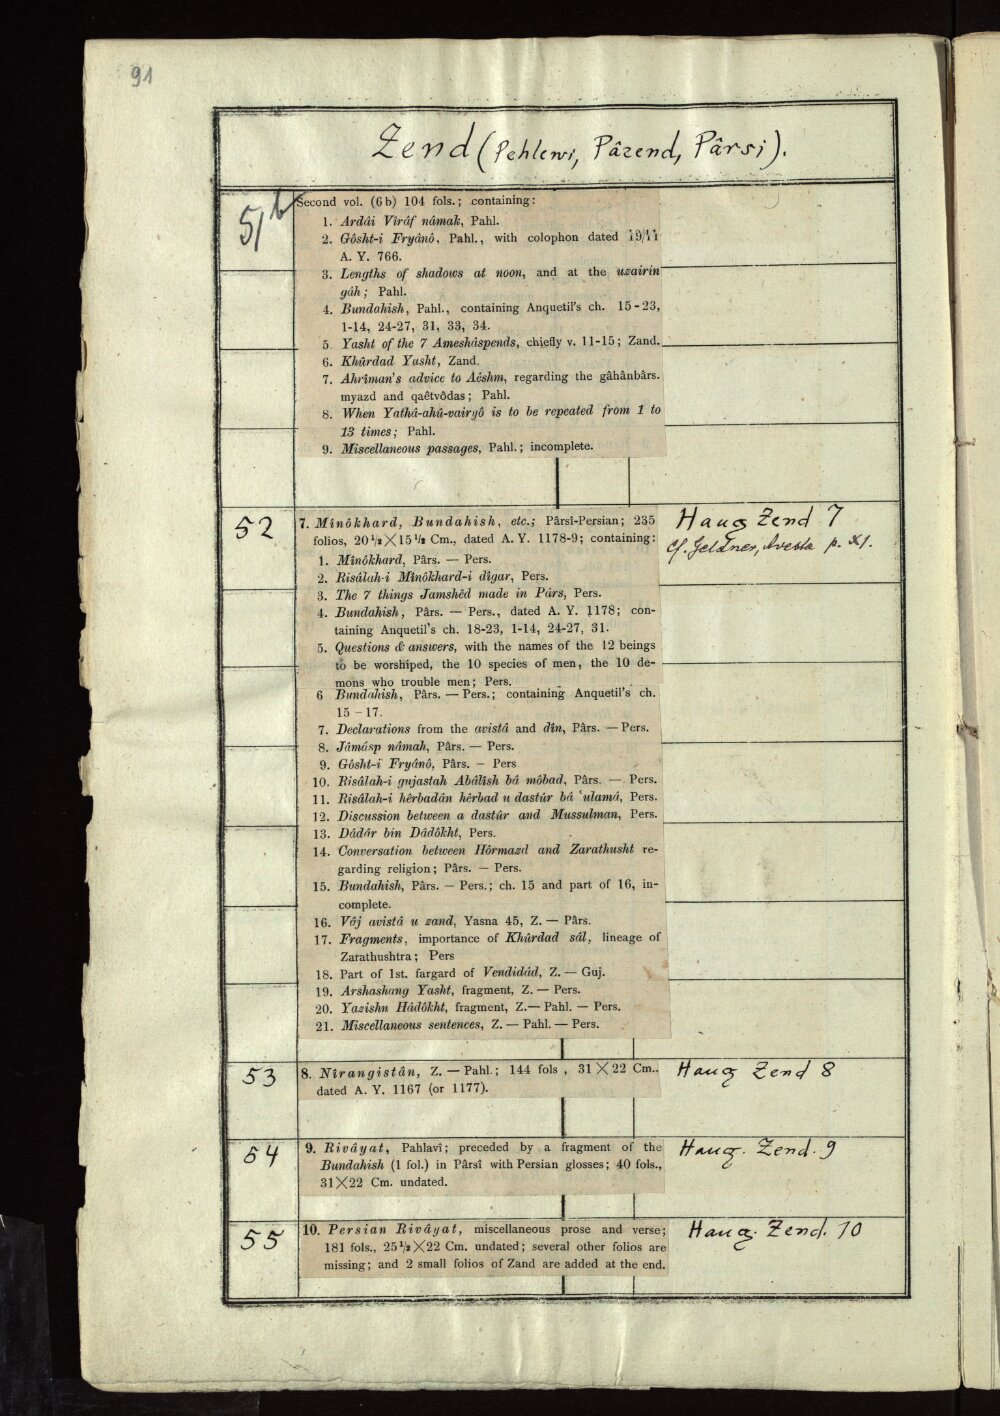 91
Zend (Pehlewi, Pâzend, Pârsi).
51b
Second vol. (6 b) 104 fols.; containing:
1. Ardâi Vîrâf nâmak, Pahl.
2. Gôsht-i Fryânô, Pahl., with colophon dated 19/11
A. Y. 766.
3. Lengths of shadows at noon, and at the uzairin
gâh; Pahl.
4. Bundahish, Pahl., containing Anquetil's ch. 15-23,
1-14, 24-27, 31, 33, 34.
5. Yasht of the 7 Ameshâspends, chiefly v. 11-15; Zand.
6. Khûrdad Yasht, Zand.
7. Ahrîman's advice to Aêshm, regarding the gâhânbârs.
myazd and qaêtvôdas; Pahl.
8. When Yathâ-ahû-vairyô is to be repeated from 1 to
13 times; Pahl.
9. Miscellaneous passages, Pahl.; incomplete.
52
7. Mînôkhard, Bundahish, etc.; Pârsî-Persian; 235
folios, 20 1/2 × 15 1/2 Cm., dated A. Y. 1178-9; containing:
Haug Zend 7
cf. Geldner, Avesta p. XI.
1. Mînôkhard, Pârs. — Pers.
2. Risâlah-i Mînôkhard-i dîgar, Pers.
3. The 7 things Jamshêd made in Pârs, Pers.
4. Bundahish, Pârs. — Pers., dated A. Y. 1178; con-
taining Anquetil's ch. 18-23, 1-14, 24-27, 31.
5. Questions & answers, with the names of the 12 beings
to be worshiped, the 10 species of men, the 10 de-
mons who trouble men; Pers.
6 Bundahish, Pârs. — Pers.; containing Anquetil's ch.
15 - 17.
7. Declarations from the avistâ and dîn, Pârs. — Pers.
8. Jâmâsp nâmah, Pârs. — Pers.
9. Gôsht-i Fryânô, Pârs. — Pers
10. Risâlah-i gujastah Abâlish bâ môbad, Pârs. — Pers.
11. Risâlah-i hêrbadân hêrbad u dastûr bâ 'ulamâ, Pers.
12. Discussion between a dastûr and Mussulman, Pers.
13. Dâdâr bin Dâdôkht, Pers.
14. Conversation between Hôrmazd and Zarathusht re-
garding religion; Pârs. — Pers.
15. Bundahish, Pârs. — Pers.; ch. 15 and part of 16, in-
complete.
16. Vâj avistâ u zand, Yasna 45, Z. — Pârs.
17. Fragments, importance of Khûrdad sâl, lineage of
Zarathushtra; Pers
18. Part of 1st. fargard of Vendidâd, Z. — Guj.
19. Arshashang Yasht, fragment, Z. — Pers.
20. Yazishn Hâdôkht, fragment, Z.— Pahl. — Pers.
21. Miscellaneous sentences, Z. — Pahl. — Pers.
53
8. Nîrangistân, Z. — Pahl.; 144 fols , 31 × 22 Cm..
dated A. Y. 1167 (or 1177).
Haug Zend 8
54
9. Rivâyat, Pahlavî; preceded by a fragment of the
Bundahish (1 fol.) in Pârsî with Persian glosses; 40 fols.,
31×22 Cm. undated.
Haug. Zend. 9
55
10. Persian Rivâyat, miscellaneous prose and verse;
181 fols., 25 1/2 × 22 Cm. undated; several other folios are
missing; and 2 small folios of Zand are added at the end.
Haug. Zend. 10